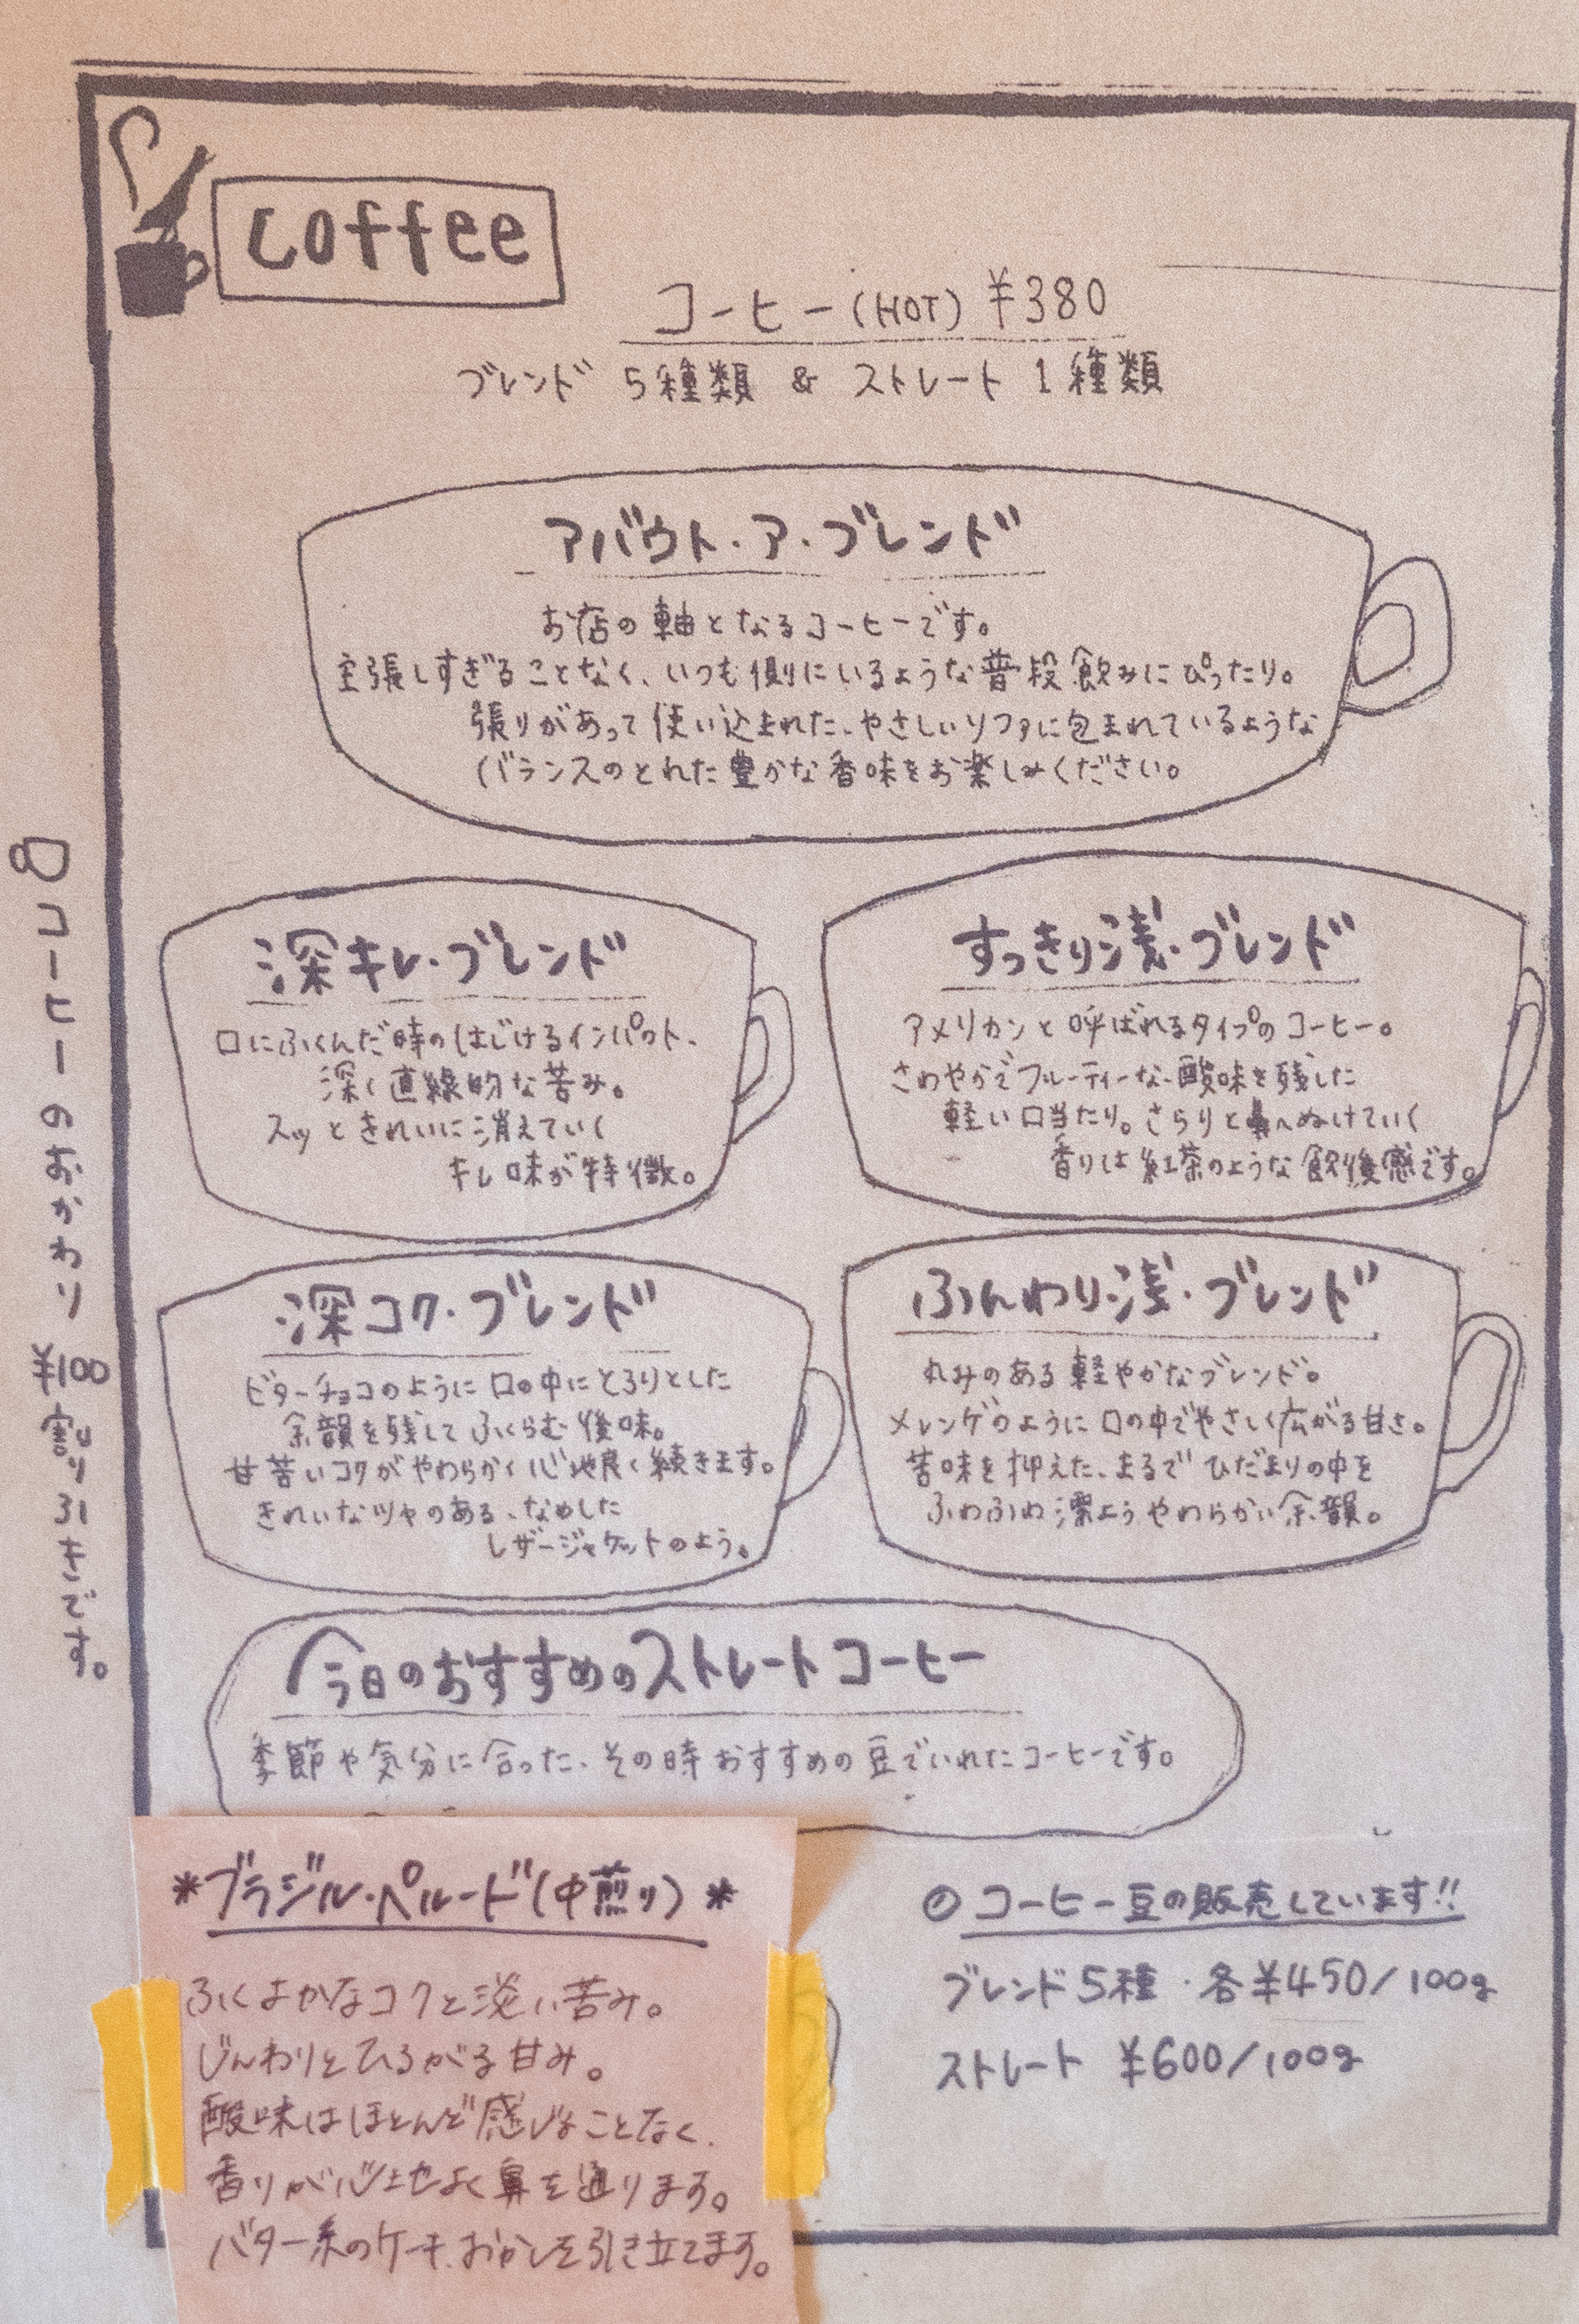 Coffee
コーヒー(HOT) ¥380
ブレンド 5種類 & ストレート 1種類
アバウト・ア・ブレンド
お店の軸となるコーヒーです。
主張しすぎることなく、いつも側にいるような普段飲みにぴったり。
張りがあって使い込まれた、やさしいソファに包まれているような
バランスのとれた豊かな香味をお楽しみください。
深キレ・ブレンド
口にふくんだ時のはじけるインパクト、
深く直線的な苦み。
スッときれいに消えていく
キレ味が特徴。
すっきり浅・ブレンド
アメリカンと呼ばれるタイプのコーヒー。
さわやかでフルーティーな酸味を残した
軽い口当たり。さらりと鼻へぬけていく
香りは紅茶のような飲後感です。
深コク・ブレンド
ビターチョコのように口の中にとろりとした
余韻を残してふくらむ後味。
甘苦いコクがやわらかく心地良く続きます。
きれいなツヤのある、なめした
レザージャケットのよう。
ふんわり浅・ブレンド
丸みのある軽やかなブレンド。
メレンゲのように口の中でやさしく広がる甘さ。
苦味を抑えた、まるでひだまりの中を
ふわふわ漂ようやわらかい余韻。
今日のおすすめのストレートコーヒー
季節や気分に合った、その時おすすめの豆でいれたコーヒーです。
*ブラジル・ペルード(中煎り)*
ふくよかなコクと淡い苦み。
じんわりとひろがる甘み。
酸味はほとんど感じることなく、
香りが心地よく鼻を通ります。
バター系のケーキ、おかしを引き立てます。
コーヒー豆の販売しています!!
ブレンド5種・各¥450/100g
ストレート ¥600/100g
コーヒーのおかわり ¥100割り引きです。